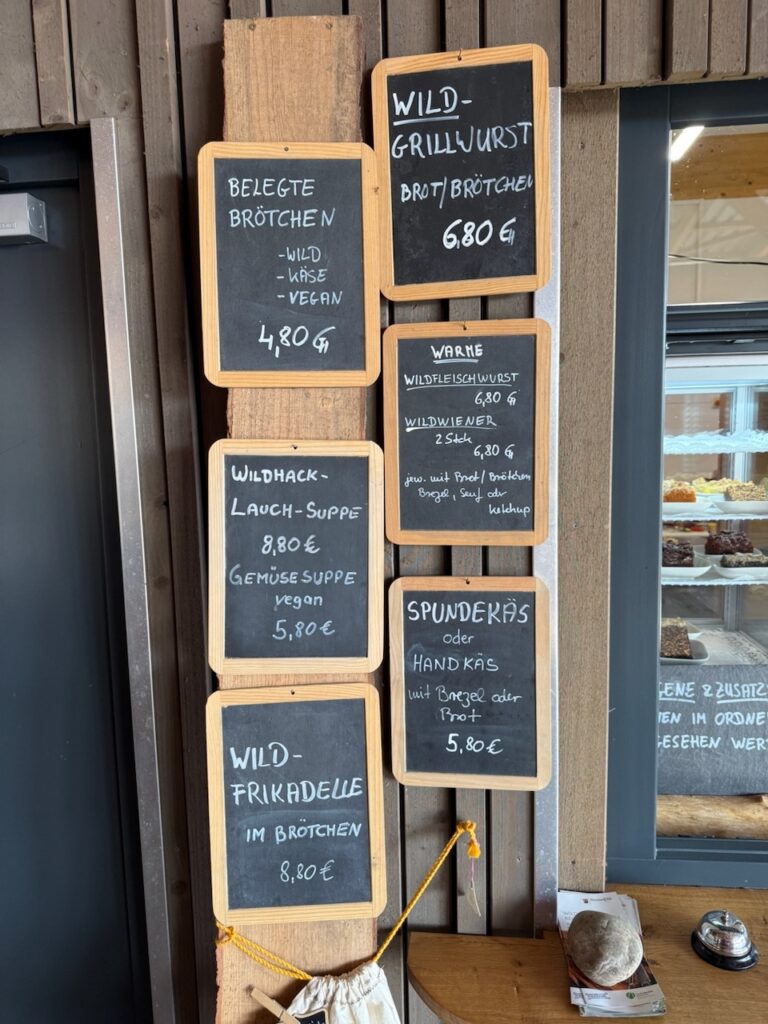 BELEGTE
BRÖTCHEN
-WILD
-KÄSE
-VEGAN
4,80 €
WILD-
GRILLWURST
BROT/BRÖTCHEN
6,80 €
WARME
WILDFLEISCHWURST
6,80 €
WILDWIENER
2 Stck
6,80 €
jew. mit Brot/Brötchen
Brezel, Senf odr
Ketchup
WILDHACK-
LAUCH-SUPPE
8,80 €
GEMÜSESUPPE
vegan
5,80 €
SPUNDEKÄS
oder
HANDKÄS
mit Brezel oder
Brot
5,80 €
WILD-
FRIKADELLE
IM BRÖTCHEN
8,80 €
GENE & ZUSATZ
EN IM ORDNE
GESEHEN WER